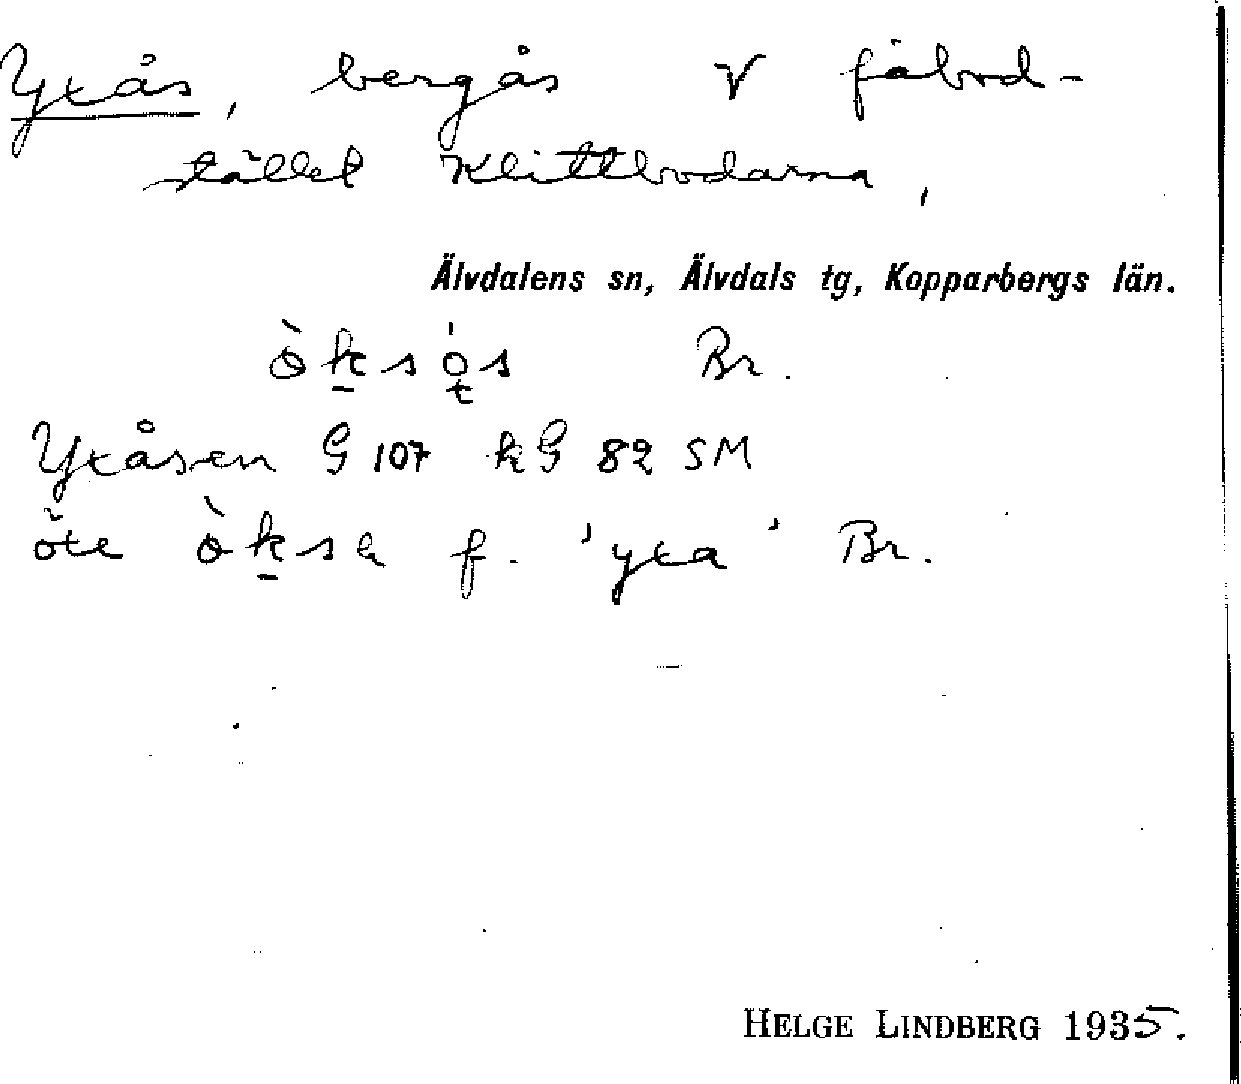 Yxås, bergås V fäbod-
stället Klittbodarna,
Älvdalens sn, Älvdals tg, Kopparbergs län.
òksós Br.
Yxåsen G 107 kG 82 SM
òksa f. 'yxa' Br.
HELGE LINDBERG 1935.